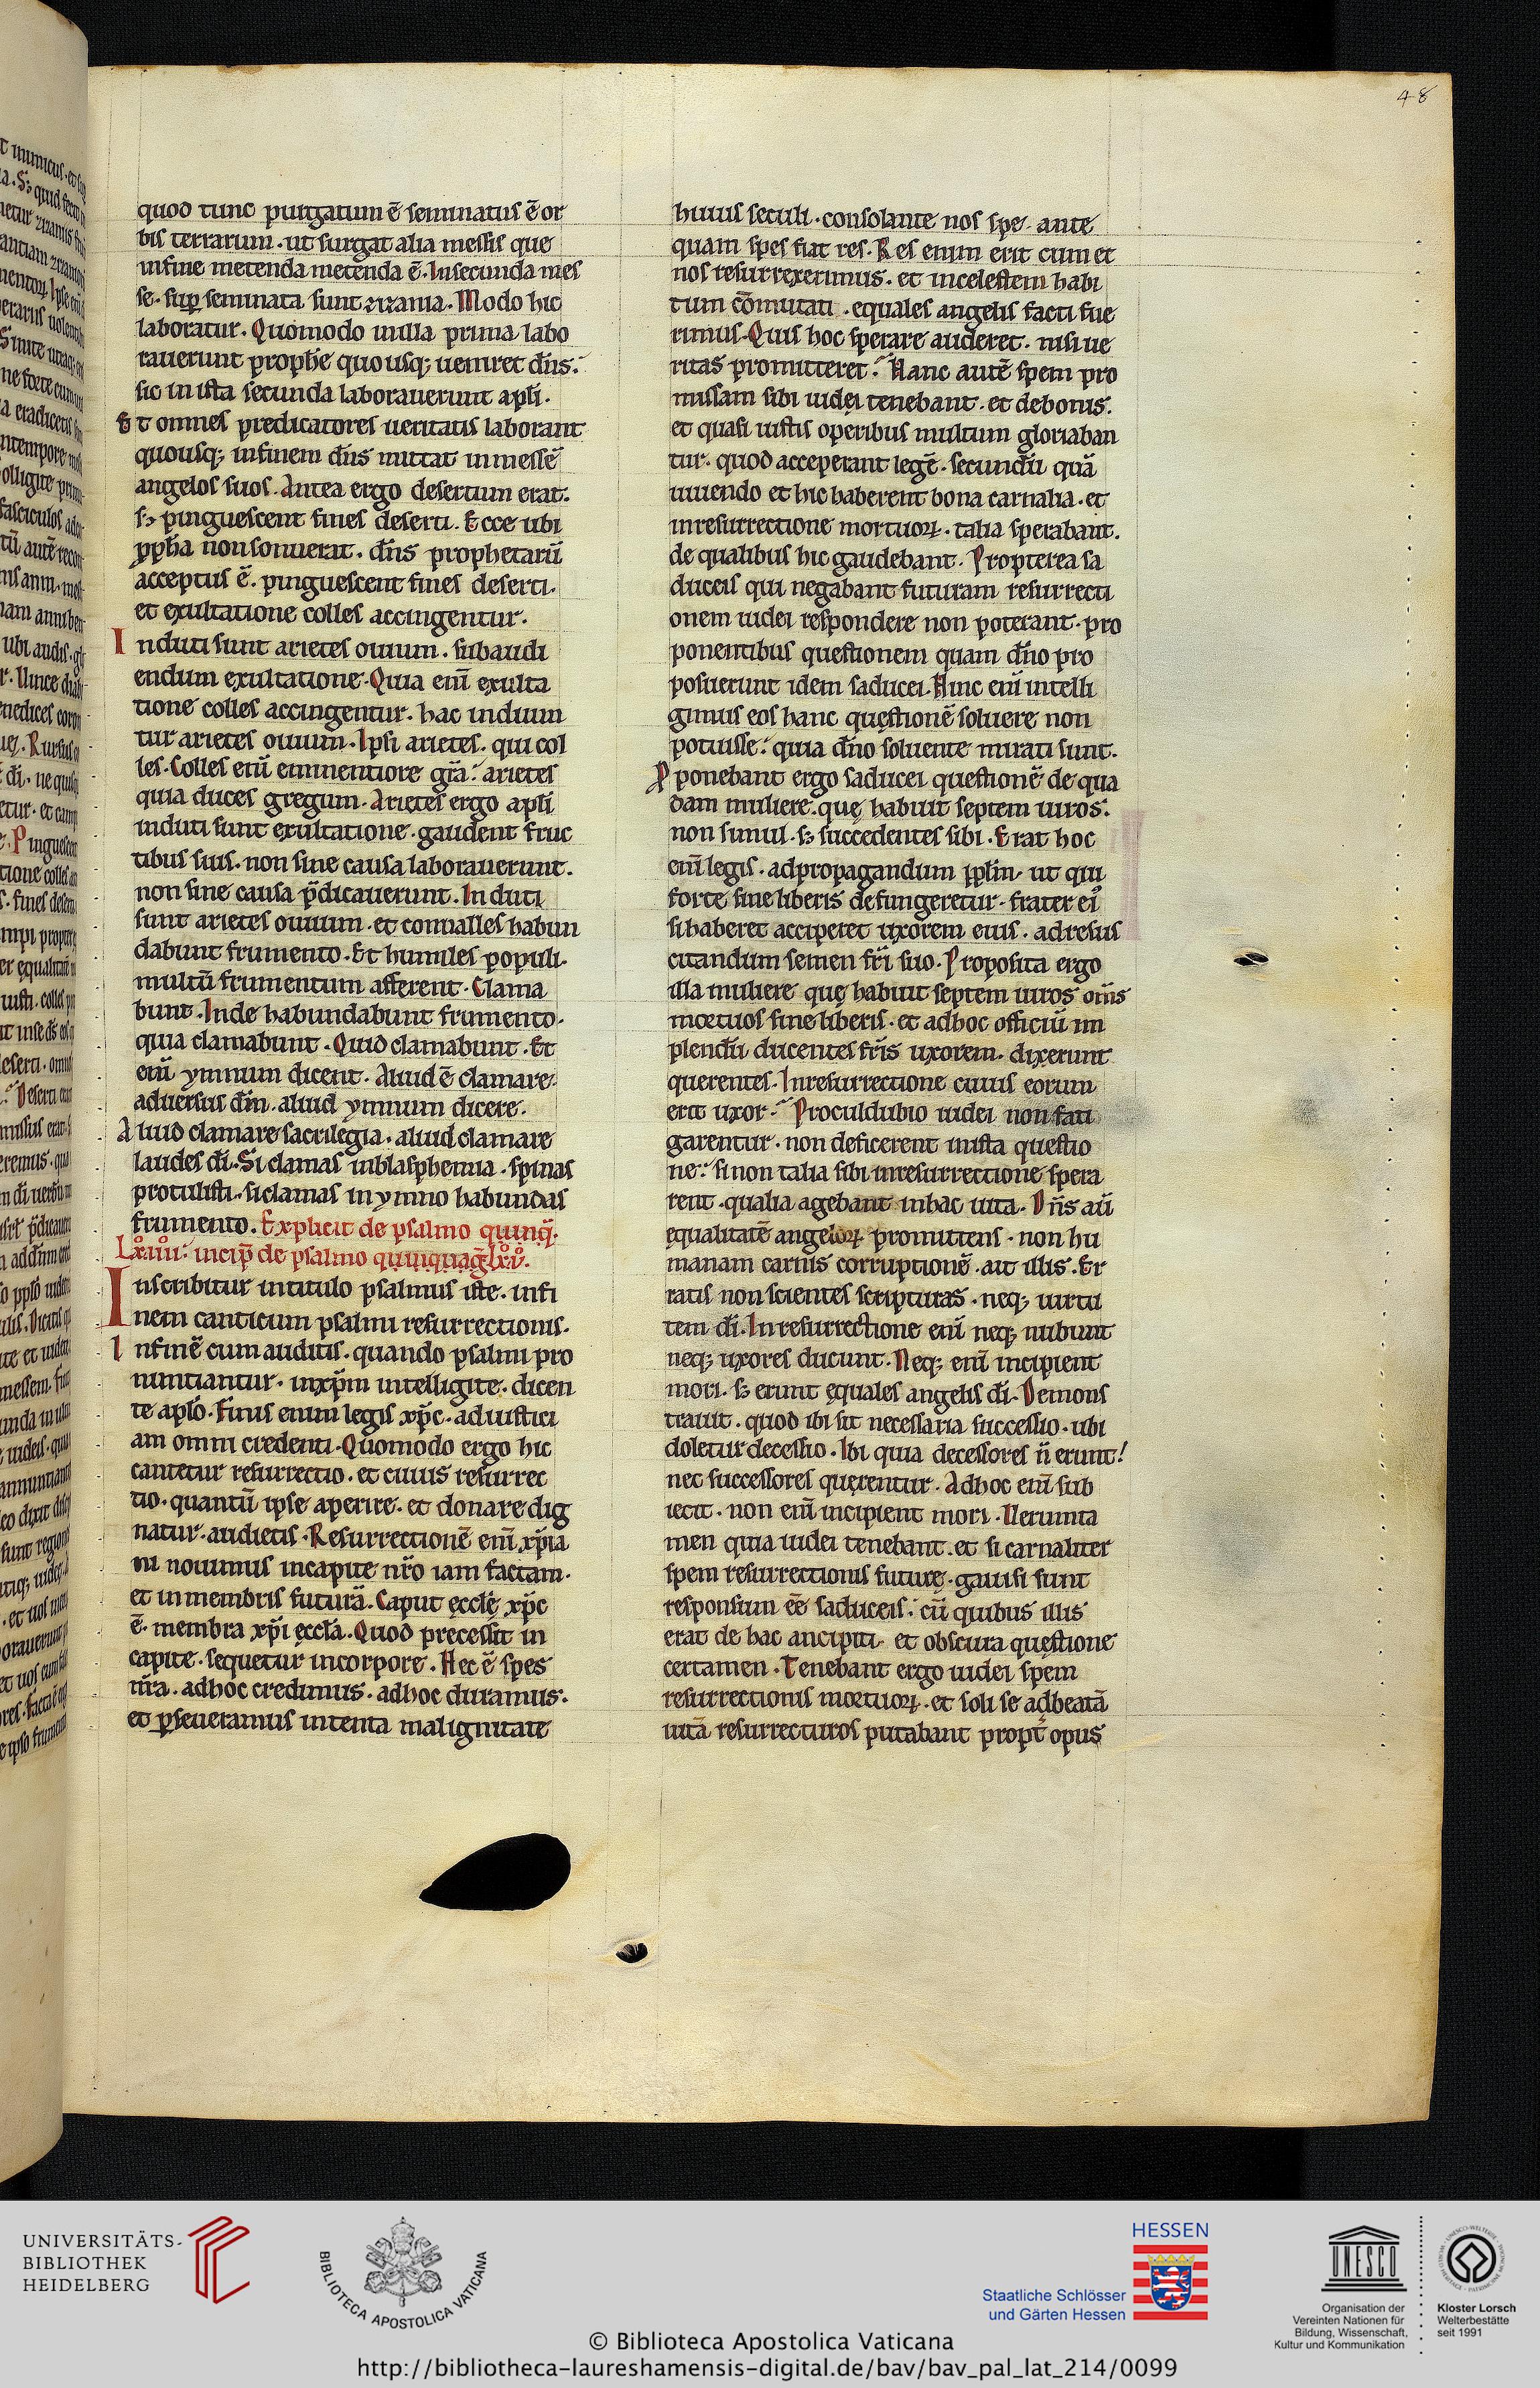 48
quod tunc purgatum ē seminatus ē or
bis terrarum · ut surgat alia messis que
infine metenda metenda ē · Insecunda mes
se · suꝑ seminata sunt zizania · Modo hic
laboratur · Quomodo inilla prima labo
rauerunt prophe̅ quo usq; ueniret dn̅s ·
sic in ista secunda laborauerunt apl̅i ·
Et omnes predicatores ueritatis laborant
quousq; infinem dn̅s mittat inmessē
angelos suos · Antea ergo desertum erat ·
sꝫ pinguescent fines deserti · Ecce ubi
ꝓph̅a nonsonuerat · dn̅s prophetarū
acceptus ē · pinguescent fines deserti ·
et exultatione colles accingentur ·
Induti sunt arietes ouium · subaudi
endum exultatione · Quia eni̅ exulta
tione colles accingentur · hac induun
tur arietes ouium · Ipsi arietes · qui col
les · Colles eni̅ eminentiore gr̅a · arietes
quia duces gregum · Arietes ergo apl̅i
induti sunt exultatione · gaudent fruc
tibus suis · non sine causa laborauerunt ·
non sine causa p̅dicauerunt · Induti
sunt arietes ouium · et conualles habun
dabunt frumento · Et humiles populi ·
multū frumentum afferent · Clama
bunt · Inde habundabunt frumento ·
quia clamabunt · Quid clamabunt · Et
eni̅ ymnum dicent · Aliud ē clamare
aduersus dm̅ · aliud ymnum dicere ·
Aliud clamare sacrilegia · aliud clamare
laudes di̅ · Si clamas inblasphemia · spinas
protulisti · siclamas in ymno habundas
frumento · Explicit de psalmo quinq̅ ·
Lxiiii · incip̅ de psalmo quinquag̅ lxv ·
Inscribitur intitulo psalmus iste · infi
nem canticum psalmi resurrectionis ·
Infinē cum auditis · quando psalmi pro
nuntiantur · inxp̅m intelligite · dicen
te apl̅o · Finis enim legis xp̅c · adiustici
am omni credenti · Quomodo ergo hic
cantetur resurrectio · et cuius resurrec
tio · quantū ipse aperire · et donare dig
natur · audietis · Resurrectionē eni̅ xp̅ia
ni nouimus incapite nr̅o iam factam ·
et inmembris futurā · Caput ęcclę̅ xp̅c
ē · membra xp̅i ęccl̅a · Quod precessit in
capite · sequetur incorpore · Hec ē spes
nr̅a · adhoc credimus · adhoc duramus ·
et ꝑseueramus intenta malignitate
huius seculi · consolante nos spe · ante
quam spes fiat res · Res enim erit cum et
nos resurrexerimus · et incelestem habi
tum cōmutati · equales angelis facti fue
rimus · Quis hoc sperare auderet · nisi ue
ritas promitteret · Hanc autē spem pro
missam sibi iudei tenebant · et debonis ·
et quasi iustis operibus multum gloriaban
tur · quod acceperant legē · secundū quā
uiuendo et hic haberent bona carnalia · et
inresurrectione mortuoꝝ · talia sperabant ·
de qualibus hic gaudebant · Propterea sa
duceis qui negabant futuram resurrecti
onem iudei respondere non poterant · pro
ponentibus questionem quam dn̅o pro
posuerunt idem saducei · Hinc eni̅ intelli
gimus eos hanc quęstionē soluere non
potuisse · quia dn̅o soluente mirati sunt ·
Ꝓponebant ergo saducei questionē de qua
dam muliere · quę habuit septem uiros ·
non simul · sꝫ succedentes sibi · Erat hoc
eni̅ legis · adpropagandum ppl̅m · ut qui
forte sine liberis defungeretur · frater ei
si haberet acciperet uxorem eius · adresus
citandum semen fr̅i suo · Proposita ergo
illa muliere quę habuit septem uiros om̅s
mortuos sine liberis · et adhoc officiū im
plendū ducentes fr̅is uxorem · dixerunt
querentes · Inresurrectione cuius eorum
erit uxor · Proculdubio iudei non fati
garentur · non deficerent inista questio
ne · si non talia sibi inresurrectione spera
rent · qualia agebant inhac uita · Dn̅s au̅
ęqualitatē angeloꝝ promittens · non hu
manam carnis corruptionē · ait illis · Er
ratis non scientes scripturas · neq; uirtu
tem di̅ · Inresurrectione eni̅ neq; nubunt
neq; uxores ducunt · Neq; eni̅ incipient
mori · sꝫ erunt ęquales angelis di̅ · Demons
trauit · quod ibi sit necessaria successio · ubi
doletur decessio · Ibi quia decessores n̅ erunt
nec successores quęrentur · Adhoc eni̅ sub
iecit · non eni̅ incipient mori · Uerumta
men quia iudei tenebant · et si carnaliter
spem resurrectionis futurę · gauisi sunt
responsum ee̅ saduceis · cū quibus illis
erat de hac ancipiti · et obscura quęstione
certamen · Tenebant ergo iudei spem
resurrectionis mortuoꝝ · et soli se adbeatā
uitā resurrecturos putabant propt̅ opus
UNIVERSITÄTS-
BIBLIOTHEK
HEIDELBERG
BIBLIOTECA APOSTOLICA VATICANA
HESSEN
Staatliche Schlösser
und Gärten Hessen
UNESCO
Organisation der
Vereinten Nationen für
Bildung, Wissenschaft,
Kultur und Kommunikation
Kloster Lorsch
Welterbestätte
seit 1991
© Biblioteca Apostolica Vaticana
http://bibliotheca-laureshamensis-digital.de/bav/bav_pal_lat_214/0099